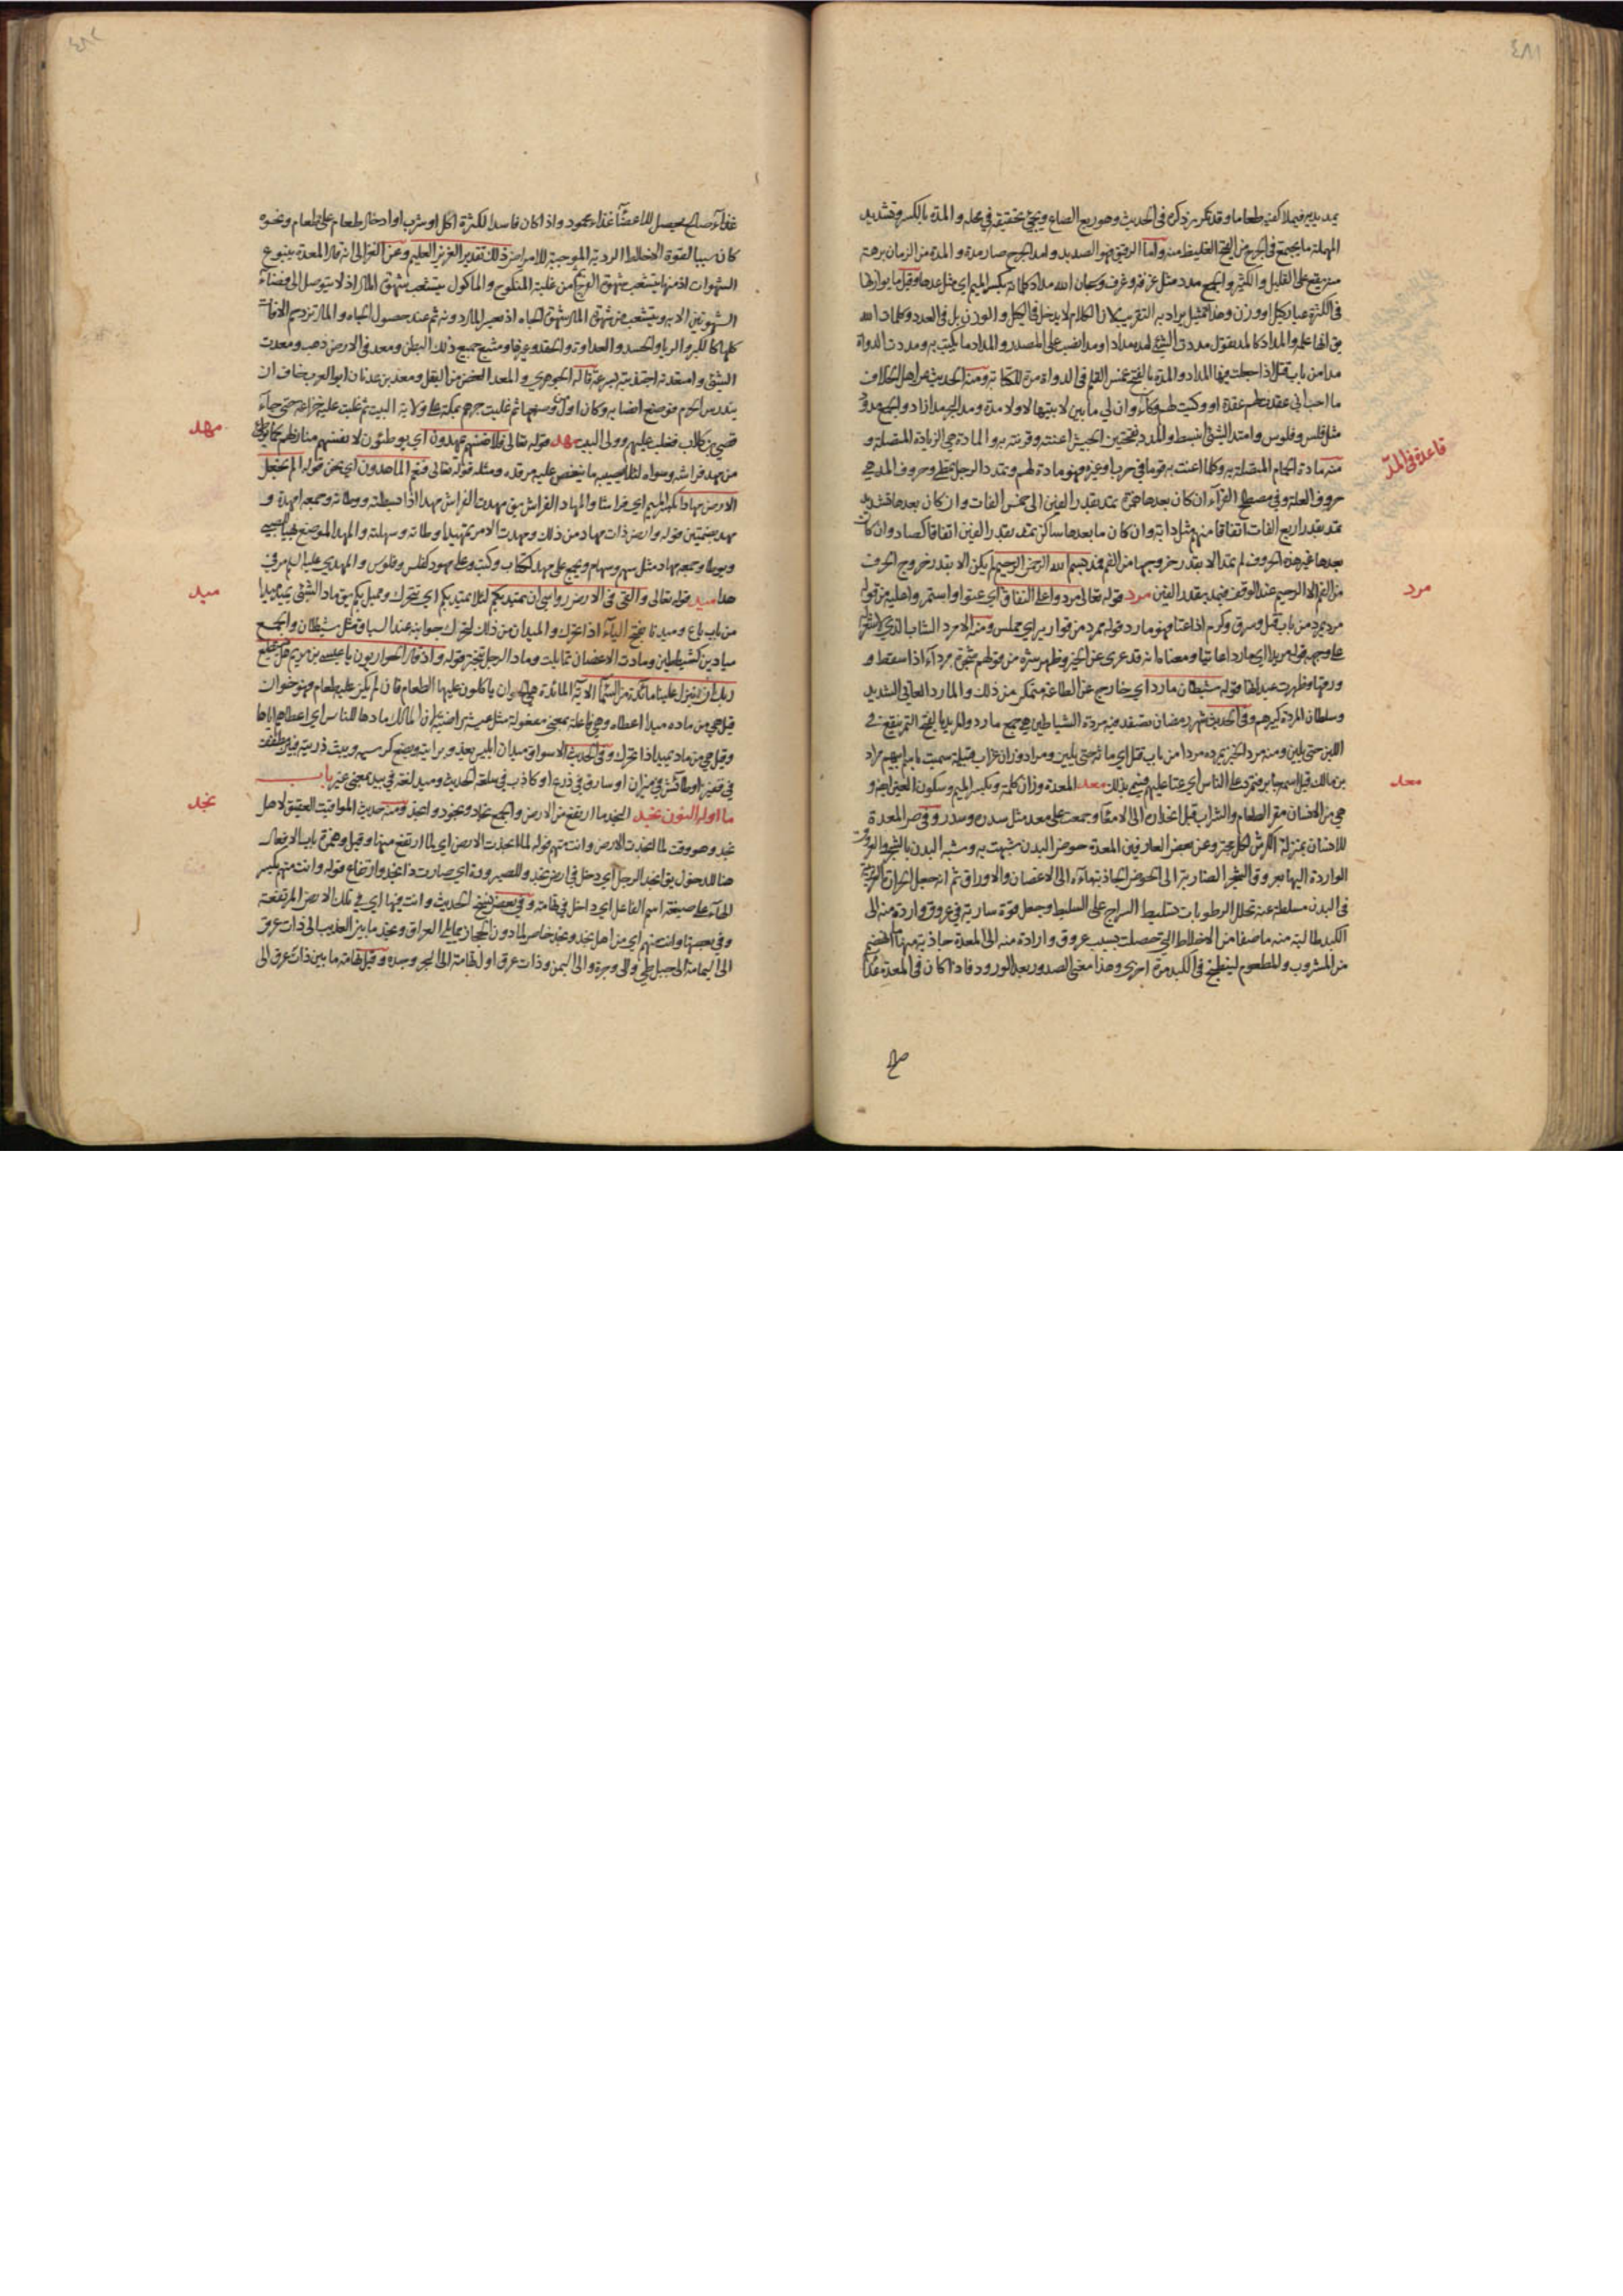 ٤٨١
يمد يديه فيملأ كفيه طعاما وقد تكرر ذكره في الحديث وهو ربع الصاع ويجئ تحقيقه في محله والمدة بالكسر وتشديد
المهملة ما يجتمع في الجرح من القيح الغليظ منه واما الرقيق فهو الصديد وامد الجرح صار مدة والمدة من الزمان برهة
منه يقع على القليل والكثير والجمع مدد مثل غرفة وغرف وسبحان الله مداد كلماته بكسر الميم اي مثل عددها وقيل ما يوازنها
في الكثرة عيار كيل او وزن وهذا تمثيل يراد به التقريب لان الكلام لا يدخل في الكيل والوزن بل في العدد وكلمات الله
يق انها علمه والمداد كالمد يقول مددت الشئ امده مدادا ومدا نصب على المصدر والمداد ما يكتب به ومددت الدواة
مدا من باب قتل اذا جعلت فيها المداد والمدة بالفتح غمس القلم في الدواة مرة للكتابة ومنه الحديث عن اهل الخلاف
ما احب اني عقدت لهم عقدة او وكيت لهم وكاء وان لي ما بين لابتيها لا ولا مدة ومد البحر مدا زاد والجمع مدود
مثل فلس وفلوس وامتد الشئ انبسط والمدد بفتحتين الجيش اعنته وقويته به والمادة هي الزيادة المتصلة و
منه مادة الحمام المتصلة به وكلما اعنت به قوما في حرب او غيره فهو مادة لهم وتمدد الرجل تمطى وحروف المد هي
حروف العلة وفي مصطلح القراء ان كان بعدها همزة تمد بقدر الفين الى خمس الفات وان كان بعدها تشديد
تمد بقدر اربع الفات اتفاقا منهم مثل دابة وان كان ما بعدها ساكن تمد بقدر الفين اتفاقا كصاد وان كان
بعدها غير هذه الحروف لم تمد الا بقدر خروجها من الفم فمد بسم الله الرحمن الرحيم لم يكن الا بقدر خروج الحروف
من الفم الا الرحيم عند الوقف فيمد بقدر الفين مرد قوله تعالى مردوا على النفاق اي عتوا واستمروا عليه من قوله
مرد يمرد من باب قتل وسرق وكرم اذا عتا فهو مارد قوله ممرد من قوارير اي مملس ومنه الامرد الشاب الذي لا شعر
على وجهه قوله مريدا اي ماردا عاتيا ومعناه انه قد عرى عن الخير وظهر شره من قولهم شجرة مرداء اذا سقط و
ورقها وظهرت عيدانها قوله شيطان مارد اي خارج عن الطاعة متمكن من ذلك والمارد العاتي الشديد
وسلطان المردة كبيرهم وفي الحديث شهر رمضان تصفد فيه مردة الشياطين هي جمع مارد والمريد بالفتح التمر ينقع في
اللبن حتى يلين ومنه مرد الخبز يمرده مردا من باب قتل اي ماثه حتى يلين ومراد وزان غراب قبيلة سميت باسم ابيهم مراد
بن مالك قيل اسمه جابر فتمرد على الناس اي عتا عليهم فسمي بذلك معد المعدة وزان كلمة وبكسر الميم وسكون العين ايضا و
هي من الانسان مقر الطعام والشراب قبل انحداره الى الامعاء وجمعت على معد مثل سدرة وسدر وفي ص المعدة
للانسان بمنزلة الكرش لكل مجتر وعن بعض العارفين المعدة حوض البدن شبهت به وشبه البدن بالشجر والعروق
الواردة اليها بعروق الشجر الضاربة الى الحوض الجاذبة ماءه الى الاغصان والاوراق ثم انه جعل الحرارة الغريزية
في البدن مسلطة عنه تحلل الرطوبات تسليط السراج على السليط وجعل قوة سارية في عروق واردة منه الى
الكبد طالبة منه ما صفا من الاخلاط التي حصلت بسبب عروق واردة منه الى المعدة جاذبة منها ما انهضم
من المشروب والمطعوم لينطبخ في الكبد مرة اخرى وهذا معنى الصدور بعد الورود فاذا كان في المعدة غذاء
قاعدة في المد
مرد
معد
صالح
٤٨٢
غذاء صالح يحصل للاعضاء غذاء محمود واذا كان فاسدا لكثرة اكل او شرب او ادخال طعام على طعام ونحوه
كان سببا لقوة الاخلاط الردية الموجبة للامراض ذلك تقدير العزيز العليم وعن الغزالي انه قال المعدة ينبوع
الشهوات اذ منها يتشعب شهوة الفرج ثم من غلبة المنكوح والماكول يتشعب شهوة المال اذ لا يتوصل الى قضاء
الشهوتين الا به ويتشعب من شهوة المال شهوة الجاه اذ يعسر المال دونه ثم عند حصول الجاه والمال تزدحم الافات
كلها كالكبر والريا والحسد والعداوة والحقد وغيرها ومنبع جميع ذلك البطن ومعد في الارض ذهب ومعدت
الشئ وامتعدته اجتذبته بسرعة قاله الجوهري والمعد الغض من البقل ومعد بن عدنان ابو العرب خاف ان
يندرس الحرم فوضع انصابه وكان اول من وضعها ثم غلبت جرهم بمكة على ولاية البيت ثم غلبت عليه خزاعة حتى جاء
قصي بن كلاب فغلب عليهم وولى البيت مهد قوله تعالى فلانفسهم يمهدون اي يوطئون لانفسهم منازلهم كما يوطئ
من مهد فراشه وسواه لئلا يصيبه ما ينغص عليه مرقده ومثله قوله تعالى فنعم الماهدون اي نحن قوله الم نجعل
الارض مهادا بكسر الميم اي فراشا والمهاد الفراش يق مهدت الفراش مهدا اذا بسطته ووطاته وجمعه امهدة و
مهد بضمتين قوله وارض ذات مهاد من ذلك ومهدت الامر تمهيدا وطاته وسهلته والمهد الموضع يهيأ للصبي
ويوطا وجمعه مهاد مثل سهم وسهام ويجمع على مهد ككتاب وكتب وعلى مهود كفلس وفلوس والمهدي عليه السلم مر في
هدا ميد قوله تعالى والقى في الارض رواسي ان تميد بكم لئلا تميد بكم اي تتحرك وتميل بكم يق ماد الشئ يميد ميدا
من باب باع وميدانا بفتح الياء اذا تحرك والميدان من ذلك لتحرك جوانبه عند السباق مثل شيطان والجمع
ميادين كشياطين ومادت الاغصان تمايلت وماد الرجل تبختر قوله واذ قال الحواريون يا عيسى بن مريم هل يستطيع
ربك ان ينزل علينا مائدة من السماء الاية المائدة هي الخوان ياكلون عليها الطعام فان لم يكن عليه طعام فهو خوان
قيل هي من ماده ميدا اعطاه وهي فاعلة بمعنى مفعولة مثل عيشة راضية لان المالك مادها للناس اي اعطاهم اياها
وقيل هي من ماد يميد اذا تحرك وفي الحديث الاسواق ميدان ابليس يغدو برايته ويضع كرسيه ويبث ذريته فبين مطفف
في قفيز او طائش في ميزان او سارق في ذرع او كاذب في سلعة الحديث وميد لغة في بيد بمعنى غير باب
ما اوله النون نجد النجد ما ارتفع من الارض والجمع نجاد ونجود وانجد ومنه حديث المواقيت العقيق لاهل
نجد وهو وقت لما انجدت الارض وانت متهم قوله لما انجدت الارض اي لما ارتفع منها وقيل وهمزة باب الافعال
هنا للدخول يق انجد الرجل اي دخل في ارض نجد وللصيرورة اي صارت ذا نجد وارتفاع قوله وانت متهم بكسر
الهاء على صيغة اسم الفاعل اي داخل في تهامة وفي بعض نسخ الحديث وانت فيها اي في تلك الارض المرتفعة
وفي بعضها وانت منهم اي من اهل نجد ونجد خاص لما دون الحجاز مما يلي العراق ونجد ما بين العذيب الى ذات عرق
الى اليمامة الى جبل طي والى وجرة والى اليمن وذات عرق اول تهامة الى البحر وجدة وقيل تهامة ما بين ذات عرق الى
مهد
ميد
نجد